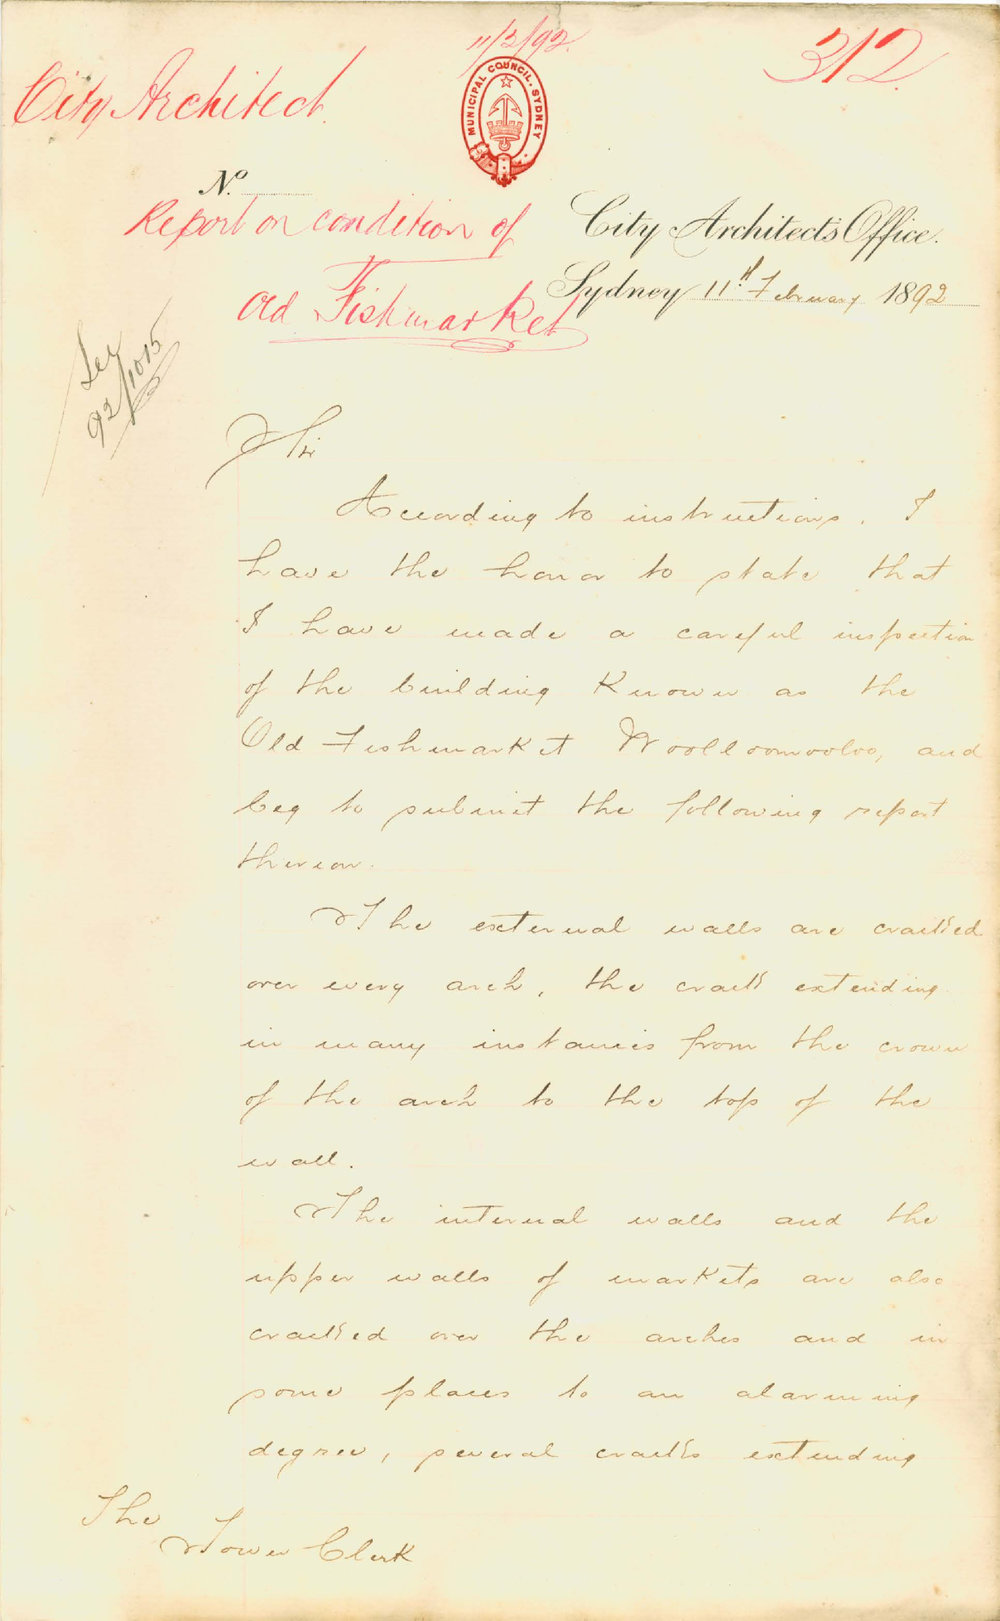 11/2/92
312
City Architect.
MUNICIPAL COUNCIL. SYDNEY
No.
Report on condition of
Old Fishmarket
City Architect's Office.
Sydney 11th February 1892
See
92/1015
Sir
According to instructions. I
have the honor to state that
I have made a careful inspection
of the building known as the
Old Fishmarket Woolloomooloo, and
beg to submit the following report
thereon.
The external walls are cracked
over every arch, the cracks extending
in many instances from the crown
of the arch to the top of the
wall.
The internal walls and the
upper walls of markets are also
cracked over the arches and in
some places to an alarming
degree, several cracks extending
The
Town Clerk